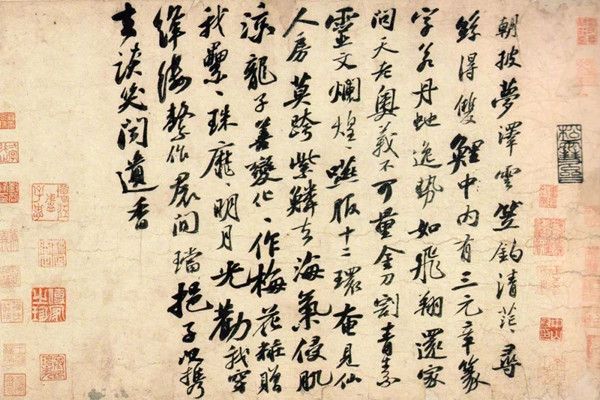 朝披夢澤雲笠釣清茫〻尋
絲得雙鯉中内有三元章篆
字若丹虵逸勢如飛翔還家
問天老奥義不可量金刀割青素
靈文爛煌〻嚥服十二環奄見仙
人房莫跨紫鱗去海氣侵肌
涼龍子善變化〻作梅花粧贈
我纍〻珠靡〻明月光勸我穿
絳縷繫作裙間璫挹子以攜
去談笑聞遺香